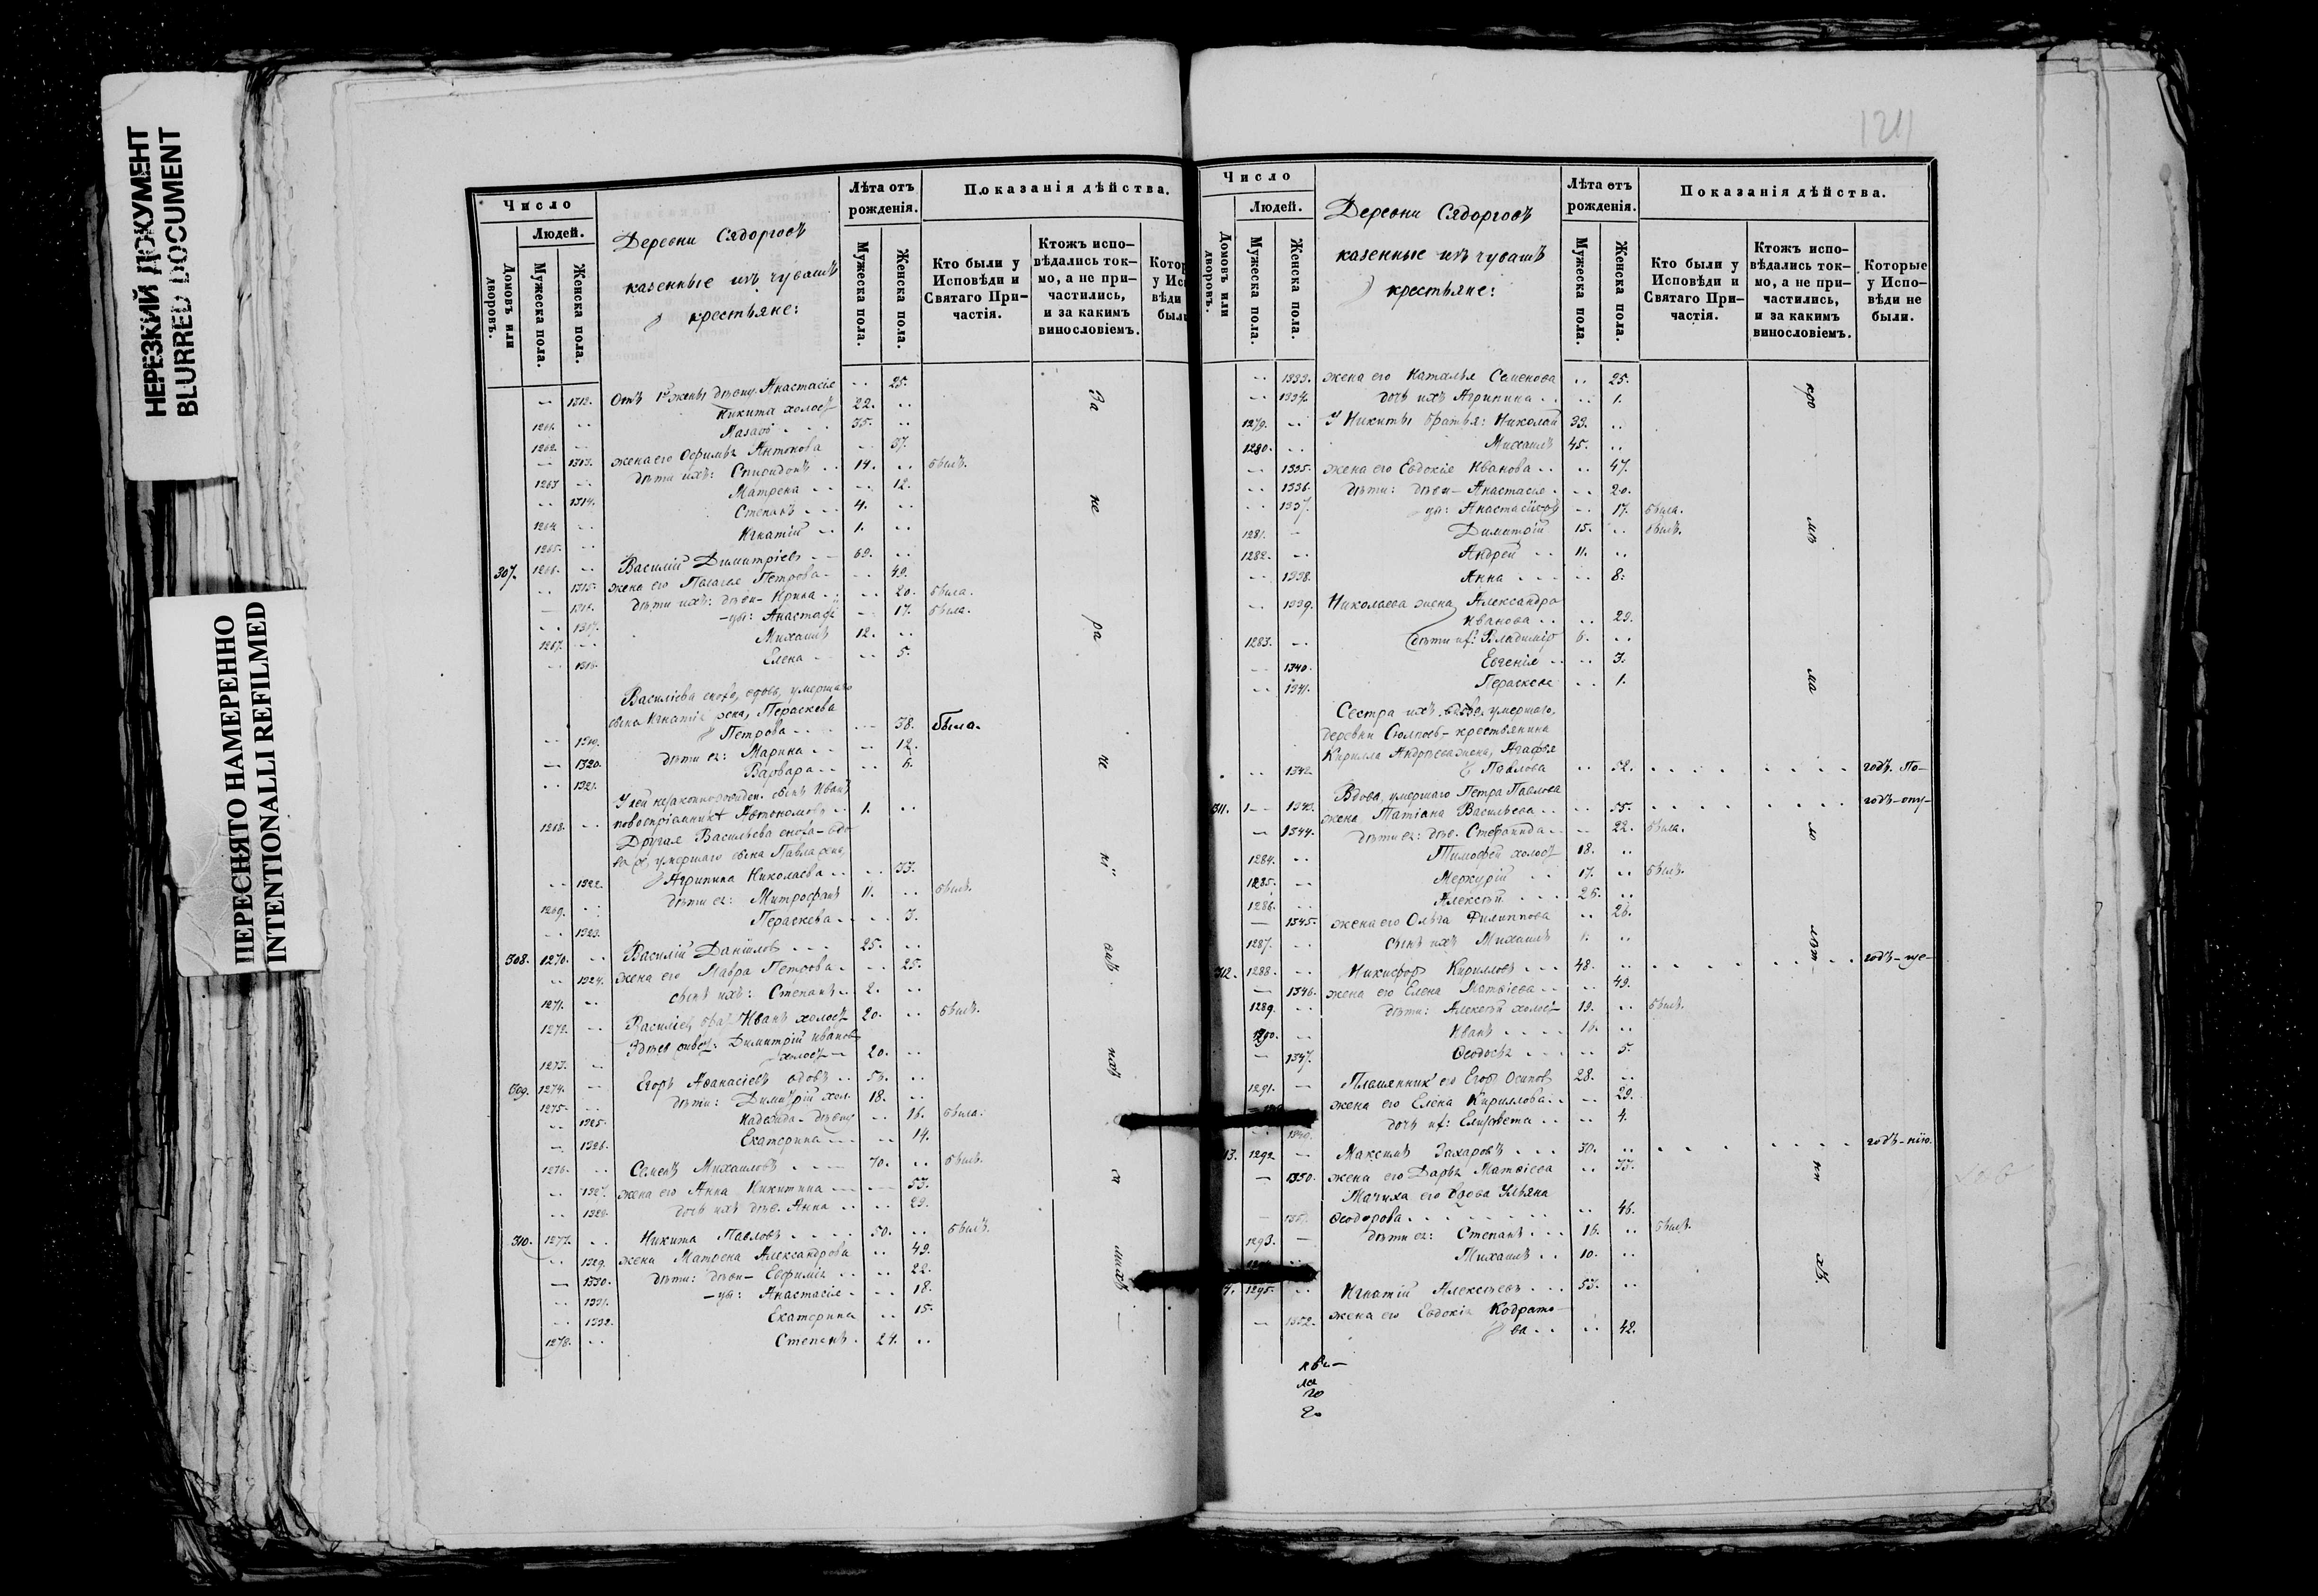 НЕРЕЗКИЙ ДОКУМЕНТ
BLURRED DOCUMENT
ПЕРЕСНЯТО НАМЕРЕННО
INTENTIONALLI REFILMED
Число
Людей.
Домовъ или дворовъ.
Мужеска пола.
Женска пола.
Деревни Сядоргасъ
казенные изъ чувашъ
крестьяне:
Лѣта отъ рожденія.
Мужеска пола.
Женска пола.
Показанія дѣйства.
Кто были у Исповѣди и Святаго Причастія.
Ктожъ исповѣдались токмо, а не причастились, и за какимъ винословіемъ.
1312. Отъ 1й жены дѣвиц. Анастасія .. 25.
1261. Никита холост 22. ..
1262. 35. ..
1313. жена его Антонова — 37.
1263 дѣти ихъ: Спиридонъ .. 14. .. былъ.
1314. Матрена .. .. 12.
1264. Степанъ ... 4. ..
1265. Игнатій .. 1. ..
307. 1266. Василій Димитріевъ 69. ..
1315. жена его Пелагея Петрова .. 49.
1316. дѣти ихъ: дѣви- Ирина .. 20. была.
1317. -цы: Анастасі — 17. была.
1267. Михаилъ 12. ..
1318. Елена .. 5.
Василіева сноха, вдова, умершаго
сына Игнатія жена, Параскева
1319. Петрова .... — 38. была.
1320. дѣти ея: Марина .. — 12.
1321. Варвара .. .. 6.
У ней незаконнорожден. сынъ Иванъ,
1268. Автономовъ .. 1. ..
Другая Васильева сноха - вдо-
ва, умершаго сына Павла жена,
1322. Агрипина Николаева .. .. 33.
1269. дѣти ея: Митрофанъ 11. .. былъ.
1323. Параскева .. .. 3.
308. 1270. Василій Даніловъ ... 25. ..
1324. жена его Мавра Петрова . — 25.
1271. сынъ ихъ: Степанъ .. 2. ..
1272. Василіев брат Иванъ холост 20. .. былъ.
Димитрій Иванов
1273. холост — 20. ..
309. 1274. Егоръ Аѳанасіевъ вдовъ .. 53. ..
1275. дѣти: Димитрій хол. 18. ..
1325. Надежда - дѣвиц .. 16. была.
1326. Екатерина .. 14.
1276. Семенъ Михаиловъ .... 70. .. былъ.
1327. жена его Анна Никитина — 53.
1328. дочь ихъ дѣв. Анна .. .. 29.
310. 1277. Никита Павловъ .... 50. .. былъ.
1329. жена Матрена Александрова .. 49.
1330. дѣти: дѣви- Евфимія .. .. 22.
1331. -цы: Анастасія . .. 18.
1332. Екатерина .. 15.
1278. Степанъ . 24. ..
Число
Людей.
Домовъ или дворовъ.
Мужеска пола.
Женска пола.
Деревни Сядоргасъ
казенные изъ чувашъ
крестьяне:
Лѣта отъ рожденія.
Мужеска пола.
Женска пола.
Показанія дѣйства.
Кто были у Исповѣди и Святаго Причастія.
Ктожъ исповѣдались токмо, а не причастились, и за какимъ винословіемъ.
Которые у Исповѣди не были.
1333. жена его Наталья Семенова .. 25.
1334. дочь ихъ Агрипина .. .. 1.
1279. У Никиты братья: Николай 33. ..
1280. Михаилъ 45. ..
1335. жена его Евдокія Иванова .. .. 47.
1336. дѣти: дѣви- Анастасія . .. 20.
1337. цы: Анастасія .. 17. была.
1281. Димитрій 15. .. былъ.
1282. Андрей .. 11. ..
1338. Анна ... .. 8.
1339. Николаева жена Александра
Иванова .. .. 29.
1283. дѣти их: Владиміръ 6. ..
1340. Евгенія .. .. 3.
1341. Параскева .. 1.
Сестра ихъ вдова, умершаго,
деревни крестьянина
Кирилла Андреева жена, Агафья
1342. Павлова .. 52. . . . . . . . . годъ. По-
Вдова, умершаго Петра Павлова
311. 1343. жена, Татіана Васильева .. .. 55. . . . . . . . . годъ- опу-
1344. дѣти ея: дѣв. Стефанида .. — 22. была.
1284. Тимофей холост 18. ..
1285. Меркурій .. 17. .. былъ.
1286. Алексѣй .... 26. ..
1345. жена его Ольга Филиппова .. 26.
1287. сынъ ихъ Михаилъ 1. ..
312. 1288. Никифоръ Кирилловъ ... 48. .. . . . . . . . . годъ- уще-
1346. жена его Елена Матвіева .. .. 49.
1289. дѣти: Алексѣй холост 19. .. былъ.
1290. Иванъ .... 16. ..
1347. Ѳедосья ... .. 5.
1291. Племянник его Егоръ Осипов 28. ..
жена его Елена Кириллова .. — 29.
дочь их: Елисавета .. .. 4.
13. 1292 Максимъ Захаровъ ... 30. .. . . . . . . . . годъ- нію.
1350. жена его Дарья Матвіева .. 33.
Мачиха его вдова Ульяна
Ѳеодорова ....... .. 46.
1293. дѣти ея: Степанъ ... 16. .. былъ.
Михаилъ .. 10. ..
4. 1295. Игнатій Алексѣевъ ... 53. ..
1352. жена его Евдокія Кодрато-
ва .. .. 42.